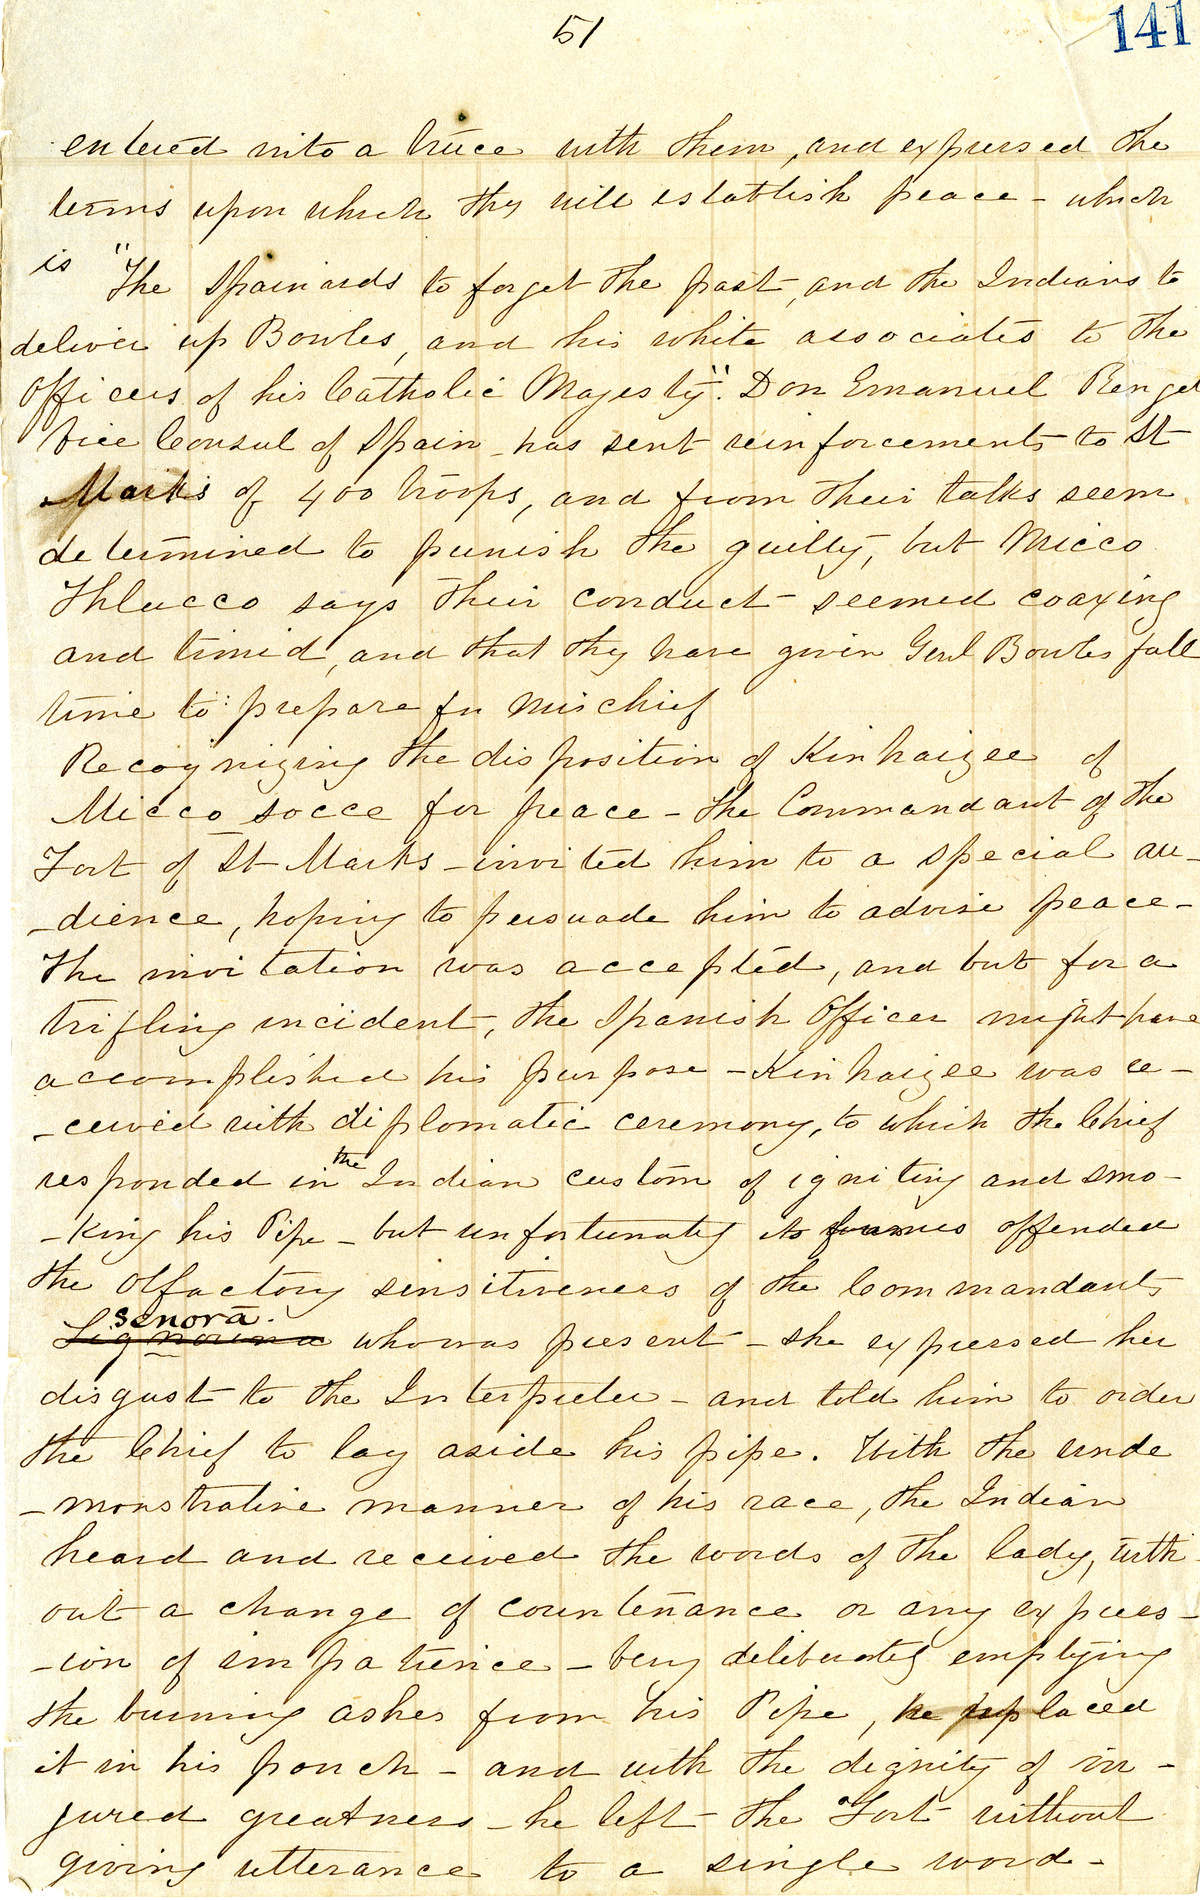 51
141
entered into a truce with them, and expressed the
terms upon which they will establish peace - which
is "The Spaniards to forget the past, and the Indians to
deliver up Bowles, and his white associates to the
Officers of his Catholic Majesty". Don Emanuel Rengel
Vice Consul of Spain - has sent reinforcements to St
Marks of 400 troops, and from their talks seem
determined to punish the guilty, but Micco
Thlucco says their conduct - seemed coaxing
and timid, and that they have given Genl Bowles full
time to prepare for mischief
Recognizing the disposition of Kinhaizee of
Micco socce for peace - the Commandant of the
Fort of St Marks - invited him to a special au-
-dience, hoping to persuade him to advise peace -
The invitation was accepted, and but for a
trifling incident, the Spanish Officer might have
accomplished his purpose - Kinhaizee was re-
-ceived with diplomatic ceremony, to which the Chief
responded in the Indian custom of igniting and smo-
-king his Pipe - but unfortunately its fumes offended
the Olfactory sensitiveness of the Commandants
Senora. who was present - she expressed her
disgust to the Interpreter - and told him to order
the Chief to lay aside his pipe. With the unde
-monstrative manner of his race, the Indian
heard and received the words of the lady, with-
out a change of countenance or any expres-
-sion of impatience - very deliberately emptying
the burning ashes from his Pipe, he replaced
it in his pouch - and with the dignity of in-
jured greatness - he left the Fort without
giving utterance to a single word -